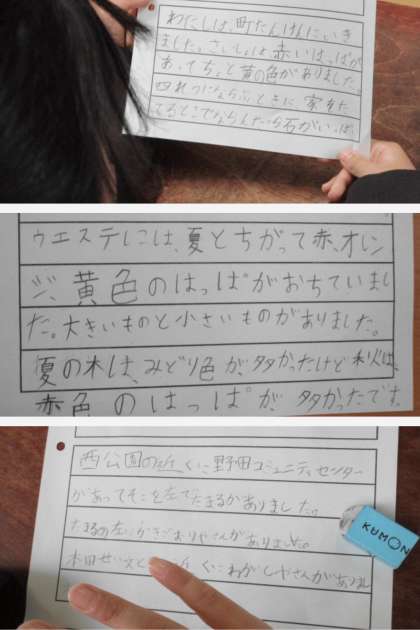 わたしは、町たんけんに、いき
ました。さいしょは赤いはっぱが
あってちょっと黄の色がありました。
四れつにならぶときに、家をた
てるところでならんだら石がいっぱ
ウエステレには、夏とちがって赤、オレン
ジ、黄色のはっぱがおちていまし
た。大きいものと小さいものがありました。
夏の木は、みどり色が、多かったけど秋は、
赤色のはっぱが、多かったです。
西公園の近くに野田コミュニティセンター
があってそこを左でたまるがありました。
たまるの左にかきごおりやさんがありました。
本田せい くにわがしやさんがあり
KUMON